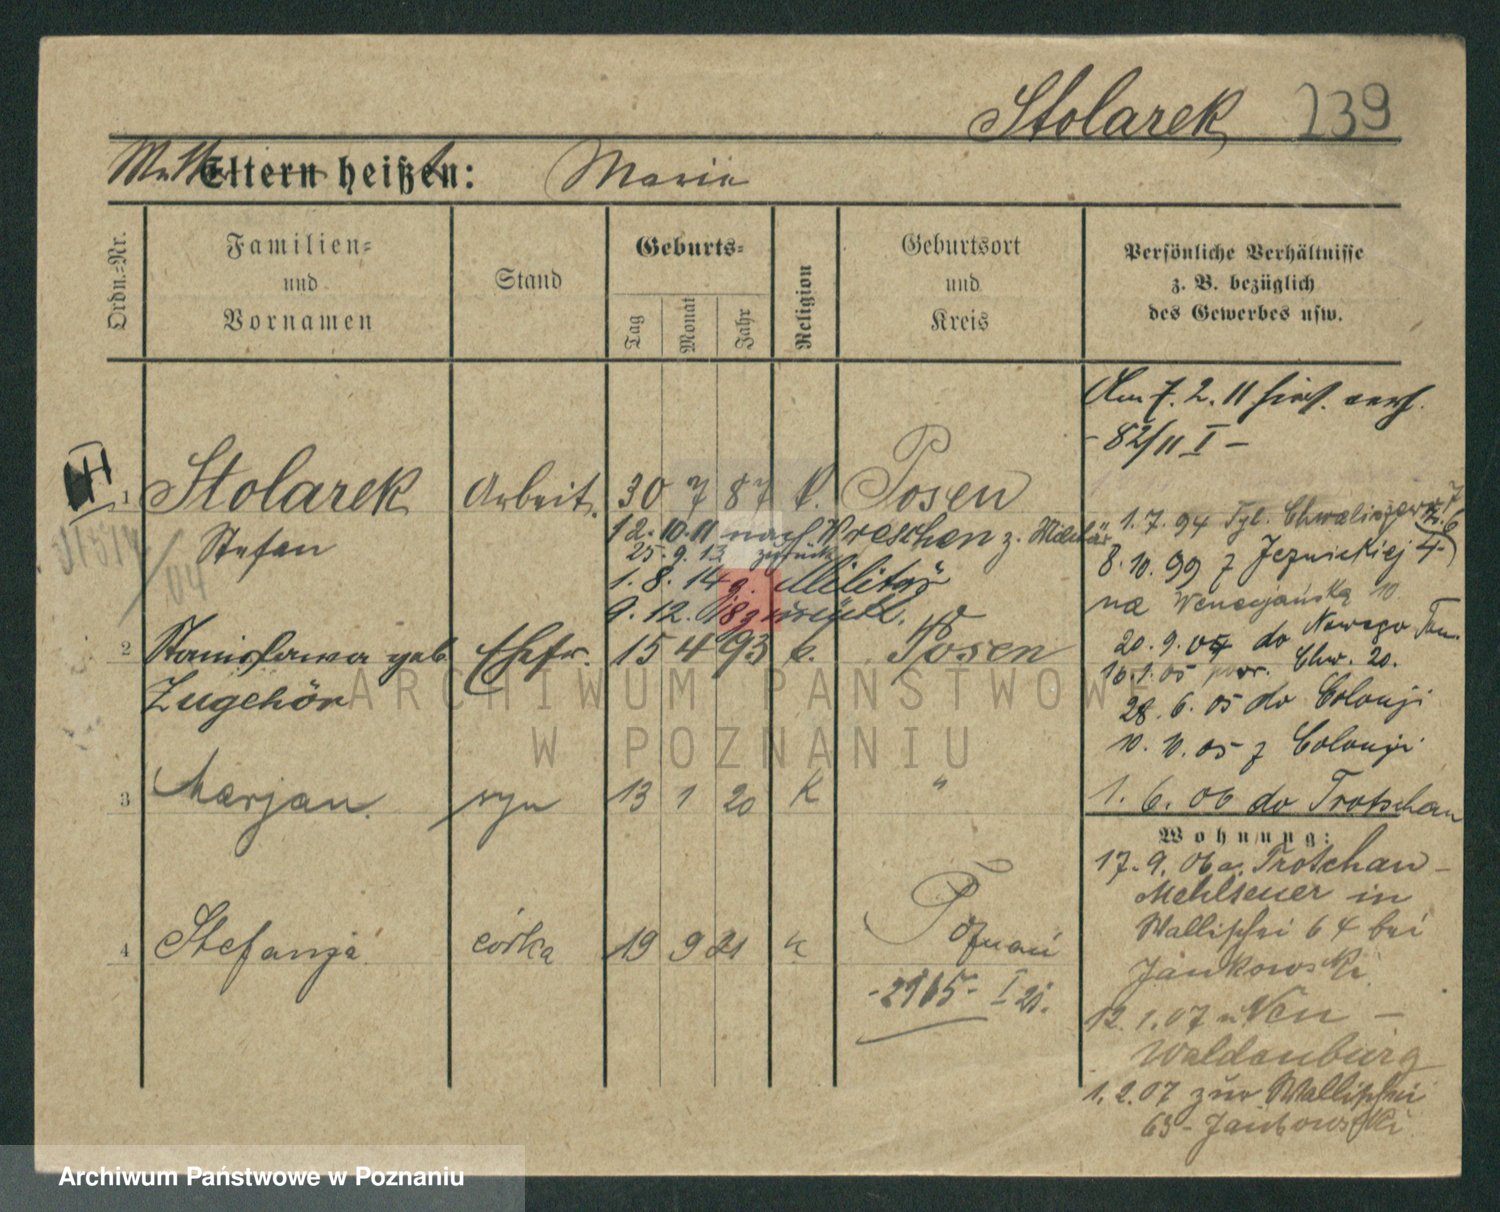 Stolarek 239
Mutter
Eltern heißen: Maria
Ordn.=Nr.
Familien=
und
Vornamen
Stand
Geburts=
Tag
Monat
Jahr
Religion
Geburtsort
und
Kreis
Persönliche Verhältnisse
z. B. bezüglich
des Gewerbes usw.
Am 7. 2. 11
- 82/11 I -
1 Stolarek Arbeit. 30 7 87 k. Posen
Stefan
12. 10. 11 nach Wreschen z. Militär
25. 9. 13 zurück
1. 8. 14 z. Militär
9. 12. 18 zurück.
2 Stanislawa geb. Ehefr. 15 4 93 k. Posen
Zugehör
3 Marjan. syn 13 1 20 K "
4 Stefanja córka 19 9 21 k Poznań
- 2965 - I 21.
04
1. 7. 94
8. 10. 99 z Jezuickiej 4
na Wenecjańską 10
20. 9. 04 do Nowego
16. 1. 05 Chw. 20.
28. 6. 05 do Colonji
10. 10. 05 z Colonji
1. 6. 06 do Trotschau
Wohnung:
17. 9. 06 a. Trotschau -
in
Wallischei 64 bei
Jankowski
12. 1. 07 n Neu -
Waldenburg
1. 2. 07 zur Wallischei
63 - Jankowski
ARCHIWUM PAŃSTWOWE
W POZNANIU
Archiwum Państwowe w Poznaniu